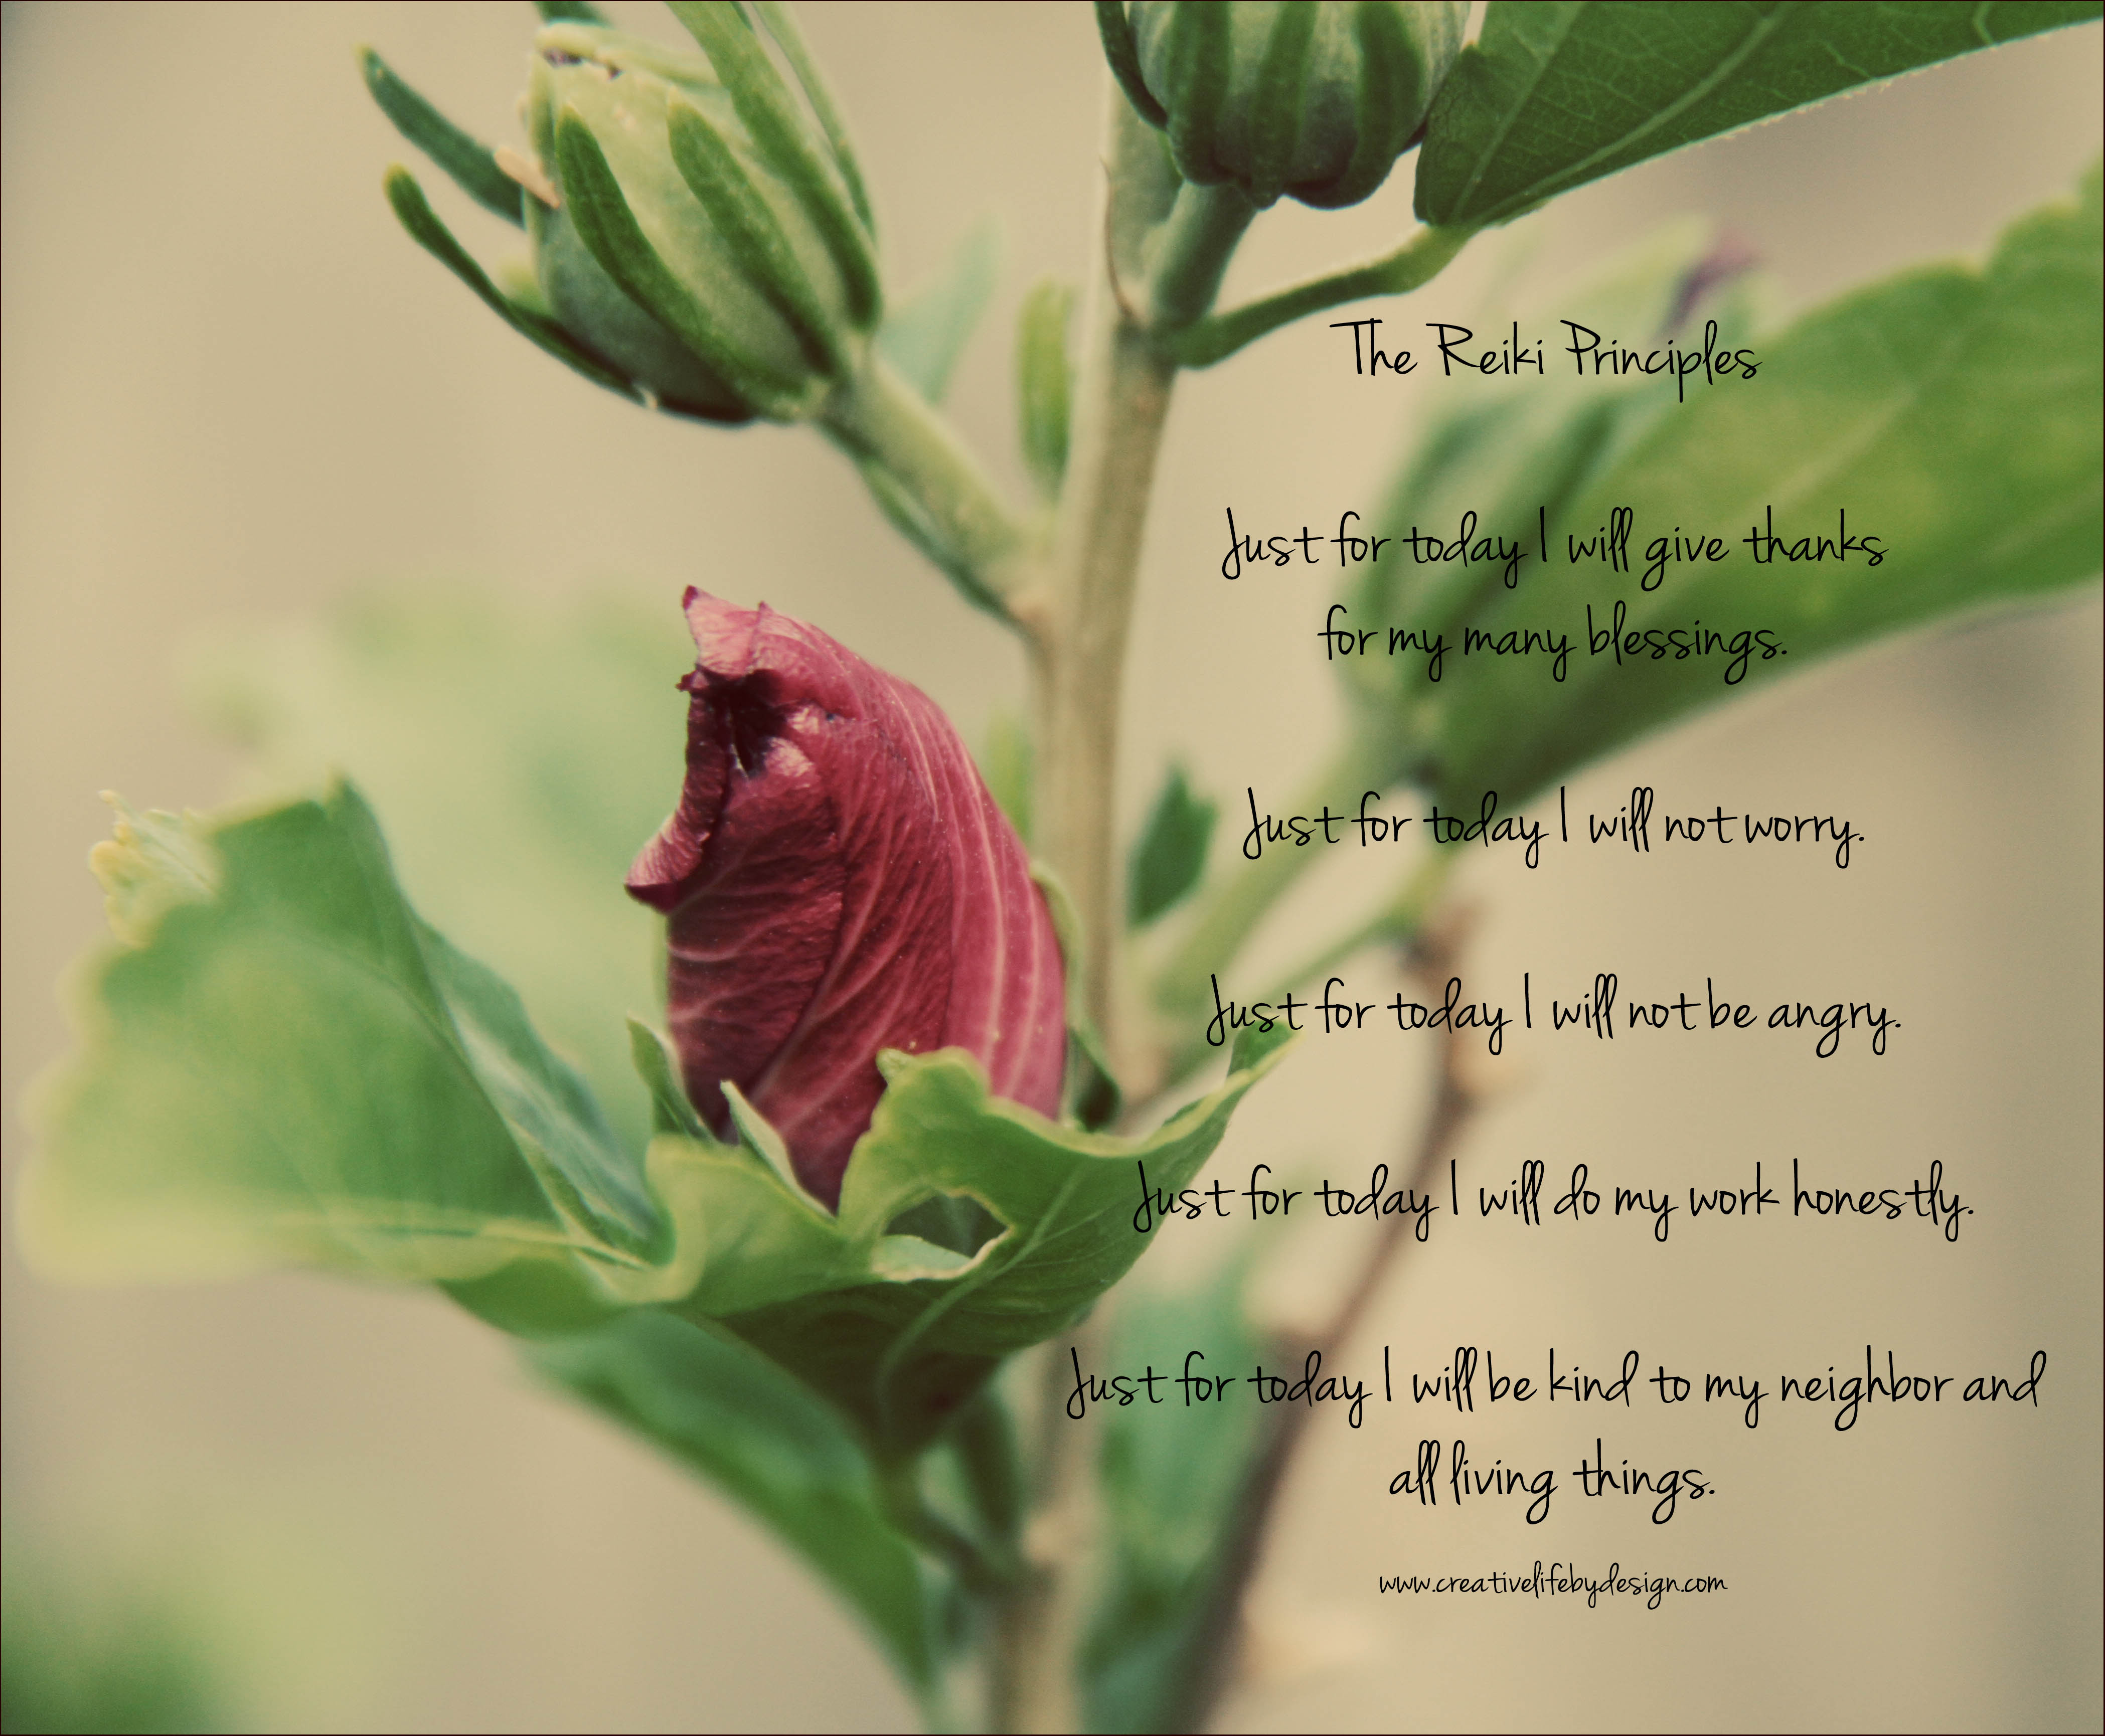 The Reiki Principles
Just for today I will give thanks
for my many blessings.
Just for today I will not worry.
Just for today I will not be angry.
Just for today I will do my work honestly.
Just for today I will be kind to my neighbor and
all living things.
www.creativelifebydesign.com